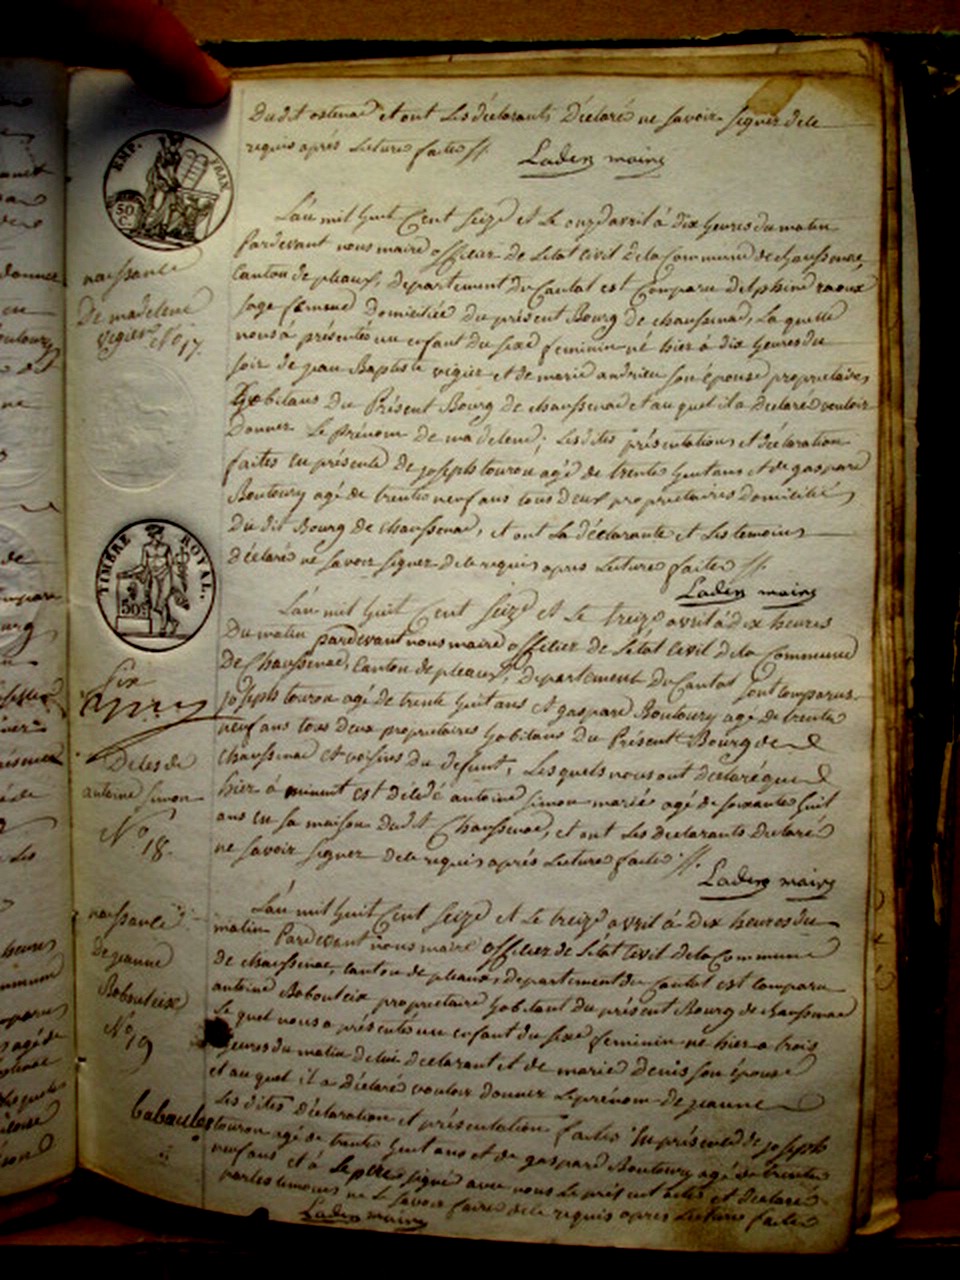 dudit ostenac et ont les déclarants déclaré ne savoir signer de le
requis après lecture faite //. Laden maire
EMP. FRAN
50 C.
naissance
De madelene
vigier No 17.
L'an mil huit cent seize et le onze avril à dix heures du matin
Pardevant nous maire officier de l'état civil de la commune de chaussenac,
canton de pleaux, departement du Cantal est comparu delphine raoux
sage femme domiciliée du présent Bourg de chaussenac, La quelle
nous à présentés un enfant du sexe feminin né hier à dix heures du
soir de jean Baptiste vigier et de marie andrieu son épouse propriétaires
habitans du Présent Bourg de chaussenac et au quel il a déclaré vouloir
donner le Prénom de madelene; Lesdites présentation et déclaration
faites en présence de joseph touron agé de trente huit ans et de gaspard
Boutoury agé de trente neuf ans tous deux propriétaires domiciliés
du dit Bourg de chaussenac, et ont la déclarante et les temoins
déclaré ne savoir signer de le requis apres lecture faite //.
Laden maire
TIMBRE ROYAL.
50 c
six
Deces de
antoine simon
No 18.
L'an mil huit cent seize et le treize avril à dix heures
Du matin pardevant nous maire officier de l'état civil de la commune
De Chaussenac, canton de pleaux, departement du Cantal sont comparus
joseph touron agé de trente huit ans et gaspard Boutoury agé de trente
neuf ans tous deux propriétaires habitans du Présent Bourg de
chaussenac et voisins du defunt, Lesquels nous ont déclaré que
hier à minuit est décédé antoine simon marié agé de soixante huit
ans en sa maison dudit Chaussenac, et ont les declarants declaré
ne savoir signer de le requis après lecture faite //.
Laden maire
naissance
De jeanne
Babouteix
No 19
L'an mil huit cent seize et le treize avril à dix heures du
matin Pardevant nous maire officier de l'état civil de la Commune
de chaussenac, canton de pleaux, departement du Cantal est comparu
antoine Babouteix propriétaire habitant du présent Bourg de chaussenac
Le quel nous a présenté un enfant du sexe feminin né hier a trois
heures du matin de lui declarant et de marie denis son épouse
et au quel il a déclaré vouloir donner le prénom de jeanne
Les dites déclaration et présentation faites en présence de joseph
touron agé de trente huit ans et de gaspard Boutoury agé de trente
neuf ans et à le père signé avec nous le présent acte et déclaré
par les temoins ne le savoir faire de le requis apres lecture faite
Laden maire